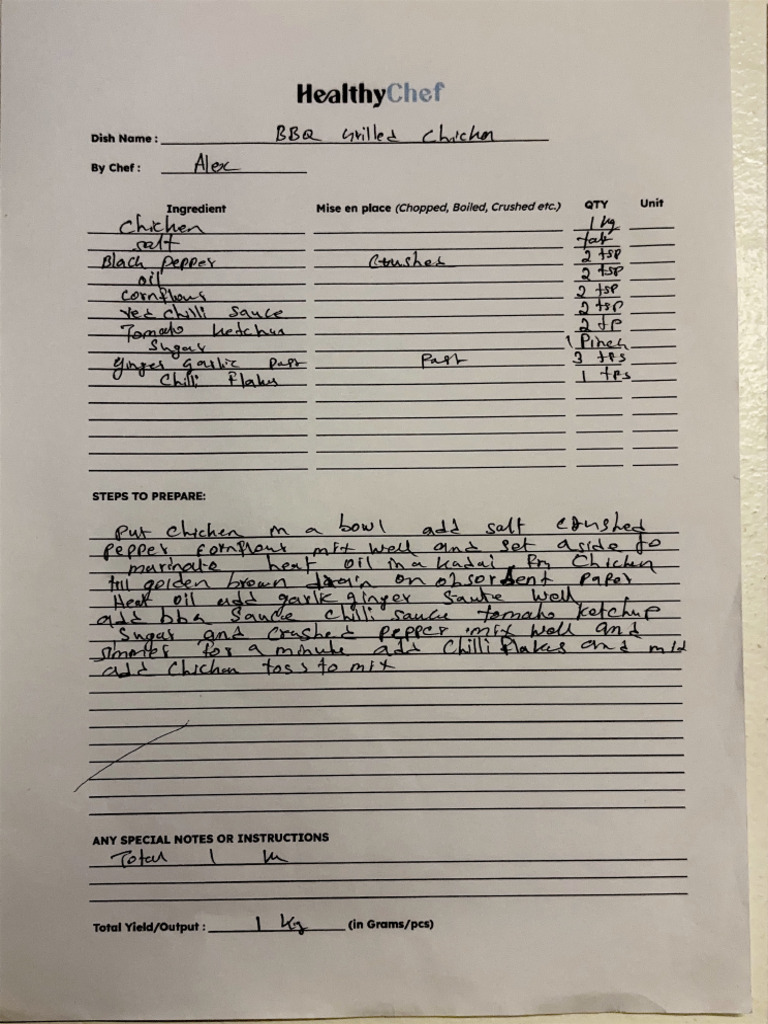 HealthyChef
Dish Name : BBQ Grilled Chicken
By Chef : Alex
Ingredient Mise en place (Chopped, Boiled, Crushed etc.) QTY Unit
Chicken 1 kg
salt
Black Pepper Crushed 2 tsp
oil 2 tsp
cornflour 2 tsp
red chilli sauce 2 tsp
Tomato ketchup 2 tp
Sugar 1 Pinch
Ginger Garlic past Past 3 tps
Chilli Flakes 1 tps
STEPS TO PREPARE:
Put chicken in a bowl add salt crushed
Pepper cornflour mix well and set aside to
marinate heat oil in a kadai Fry Chicken
till golden brown drain on obsorbent paper
Heat oil add garlic ginger Saute well
add bbq Sauce chilli sauce tomato ketchup
Sugar and crushed pepper mix well and
simmer for a minute add Chilli flakes and mix
add Chicken toss to mix
ANY SPECIAL NOTES OR INSTRUCTIONS
Total 1
Total Yield/Output : 1 Kg (in Grams/pcs)